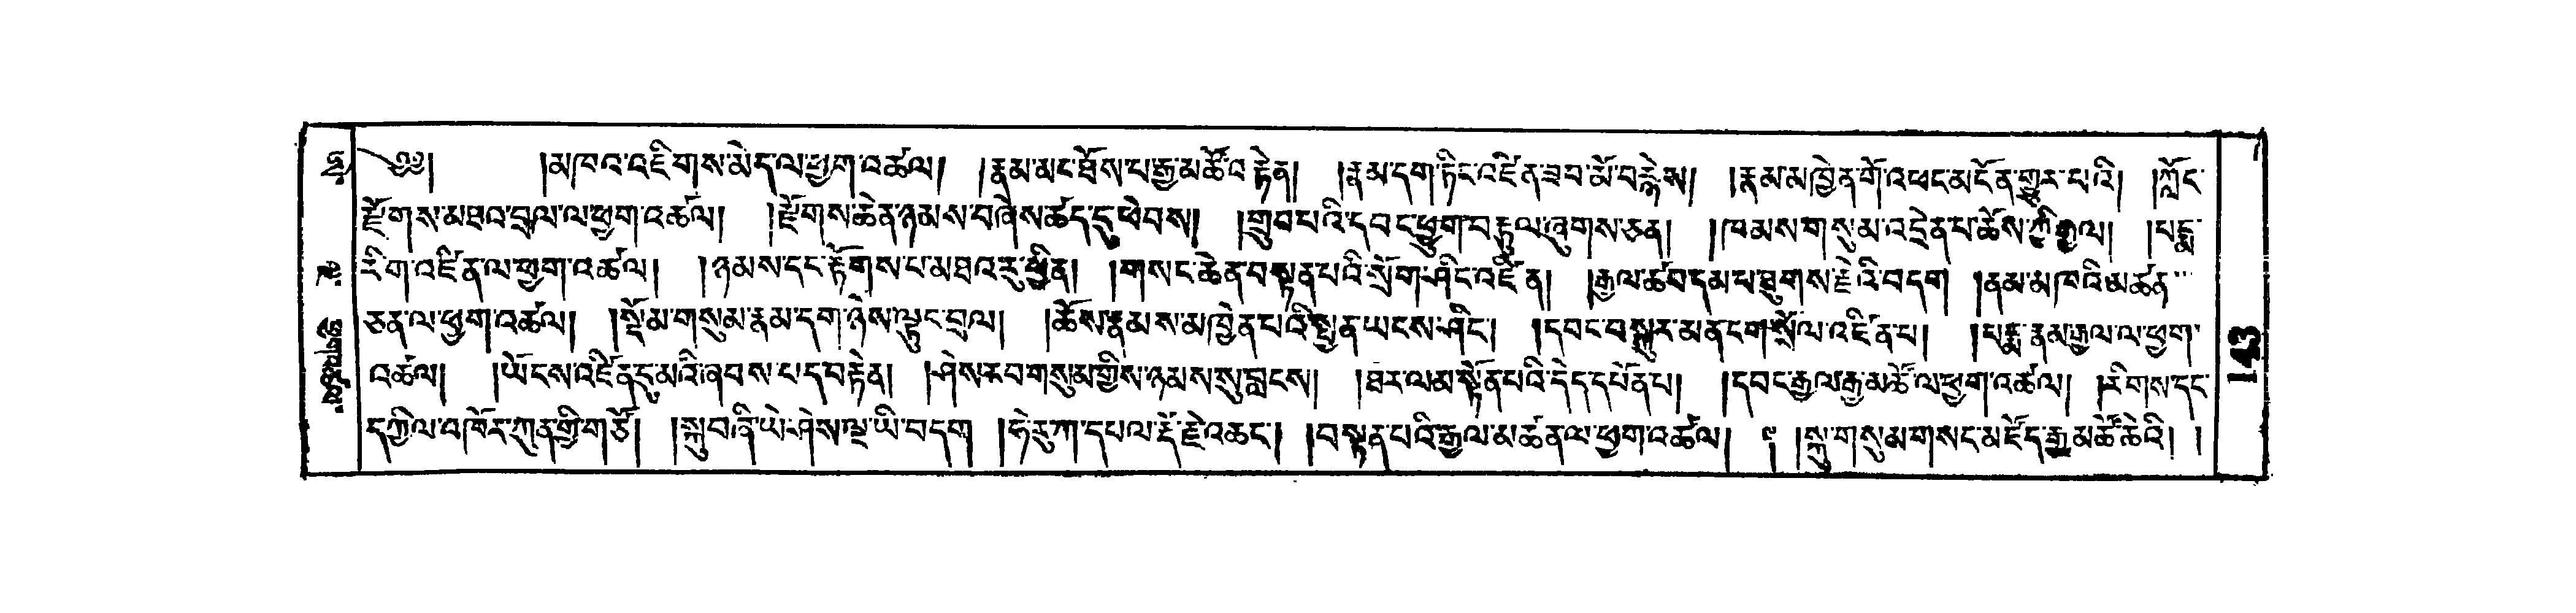 ༄༅། །མཁའ་འཇིགས་མེད་ལ་ཕྱག་འཚལ། །རྣམ་མང་ཐོས་པ་རྒྱ་མཚོའི་རྟེན། །རྣམ་དག་ཏིང་འཛིན་ཟབ་མོ་བརྙེས། །རྣམ་མཁྱེན་གོ་འཕང་མངོན་གྱུར་པའི། །ཀློང་
རྫོགས་མཐའ་བྲལ་ལ་ཕྱག་འཚལ། །རྫོགས་ཆེན་ཉམས་བཞེས་ཚད་དུ་ཕེབས། །གྲུབ་པའི་དབང་ཕྱུག་བརྟུལ་ཞུགས་ཅན། །ཁམས་གསུམ་འདྲེན་པ་ཆོས་ཀྱི་རྒྱལ། །པདྨ་
རིག་འཛིན་ལ་ཕྱག་འཚལ། །ཉམས་དང་རྟོགས་པ་མཐའ་རུ་ཕྱིན། །གསང་ཆེན་བསྟན་པའི་སྲོག་ཤིང་འཛིན། །རྒྱལ་ཚབ་དམ་པ་ཐུགས་རྗེའི་བདག །ནམ་མཁའི་མཚན་
ཅན་ལ་ཕྱག་འཚལ། །སྡོམ་གསུམ་རྣམ་དག་ཉེས་ལྟུང་བྲལ། །ཆོས་རྣམས་མཁྱེན་པའི་སྤྱན་ཡངས་ཤིང་། །དབང་བསྐུར་མན་ངག་སྲོལ་འཛིན་པ། །པདྨ་རྣམ་རྒྱལ་ལ་ཕྱག་
འཚལ། །ཡོངས་འཛིན་དུ་མའི་ཞབས་པད་བརྟེན། །ཤེས་རབ་གསུམ་གྱིས་ཉམས་སུ་བླངས། །ཐར་ལམ་སྟོན་པའི་དེད་དཔོན་པ། །དབང་རྒྱལ་རྒྱ་མཚོ་ལ་ཕྱག་འཚལ། །རིགས་དང་
དཀྱིལ་འཁོར་ཀུན་གྱི་གཙོ། །སྐུ་བཞི་ཡེ་ཤེས་ལྔ་ཡི་བདག །ཧེ་རུ་ཀ་དཔལ་རྡོ་རྗེ་འཆང་། །བསྟན་པའི་རྒྱལ་མཚན་ལ་ཕྱག་འཚལ། །སྐུ་གསུམ་གསང་མཛོད་རྒྱ་མཚོ་ཆེའི། །